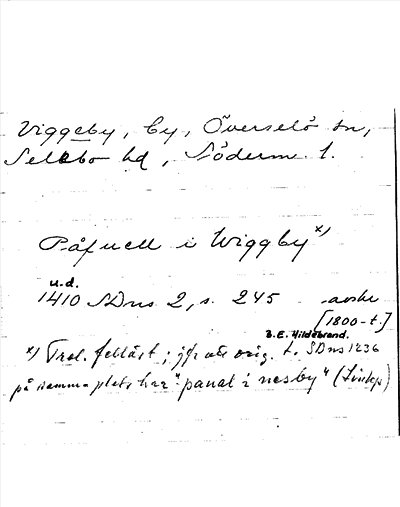 Viggeby, by, Överselö sn,
Selebo hd, Söderm. l.
Påfuell i Wiggby x)
u.d.
1410 SDns 2, s. 245 avskr
[1800-t.]
B.E. Hildebrand.
x) Trol. felläst; jfr att orig. t. SDns 1236
på samma plats har "panal i nesby" (Linköp)